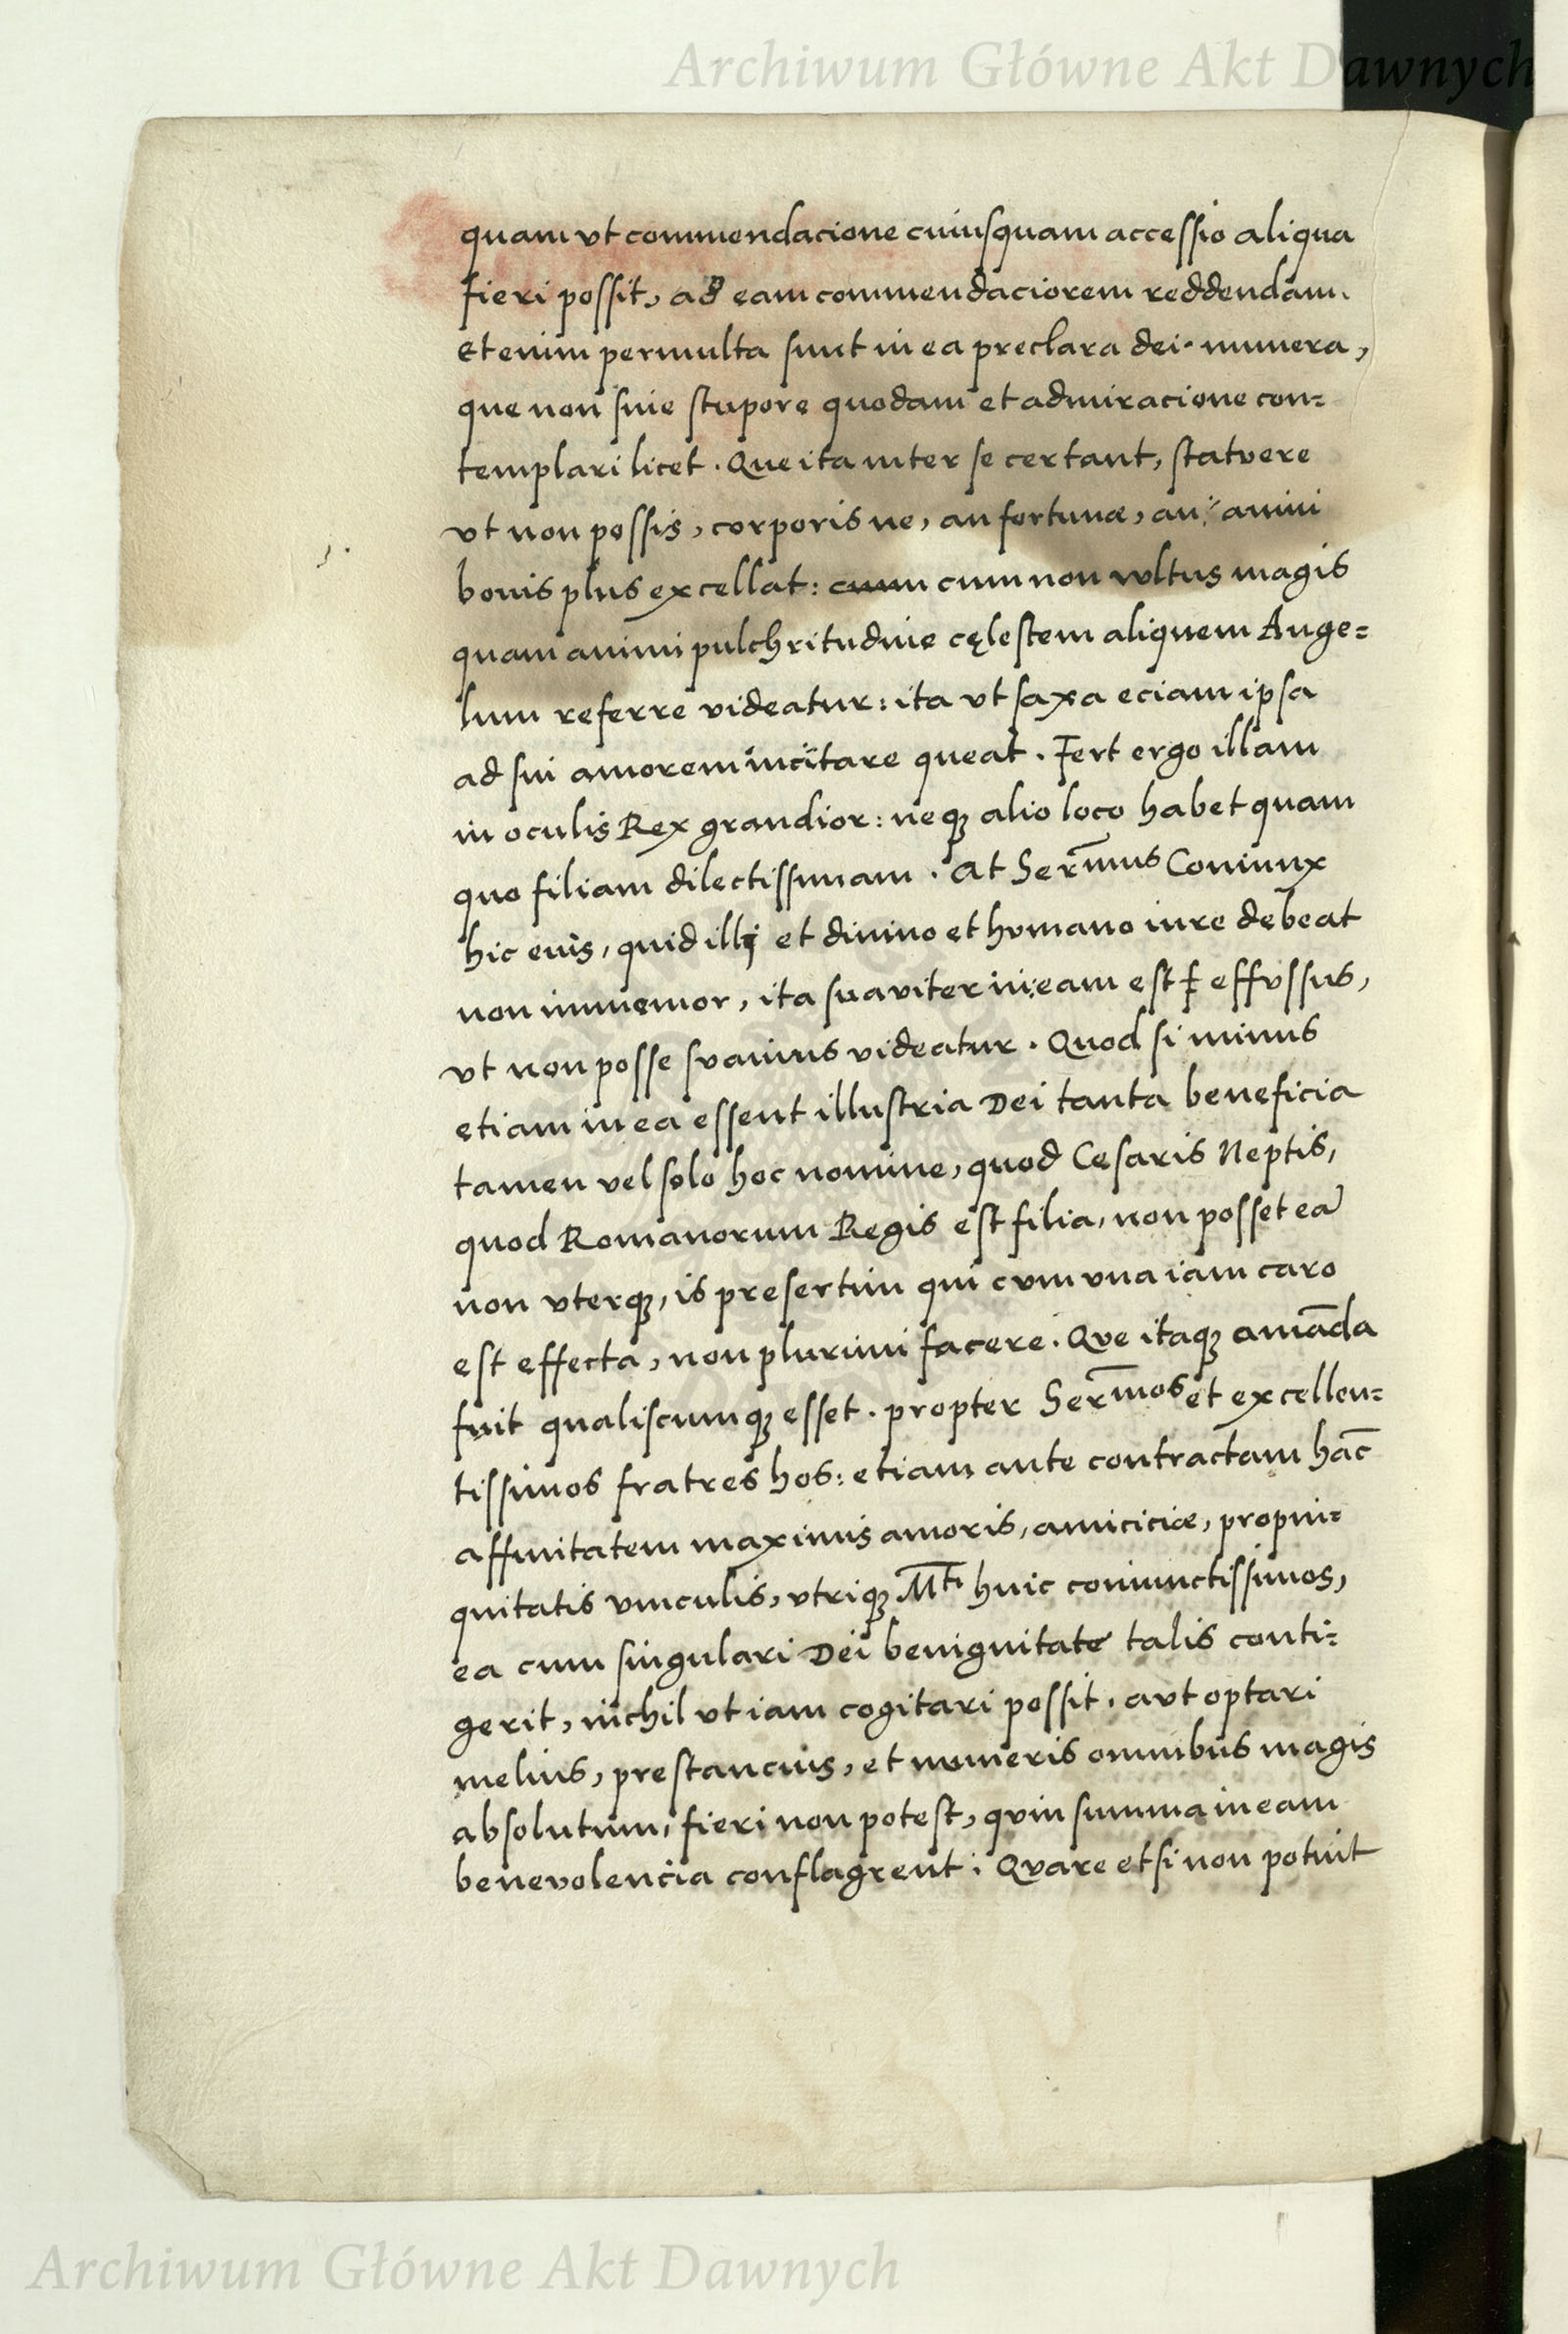 Archiwum Główne Akt Dawnych
quam vt commendacione cuiusquam accessio aliqua
fieri possit, ad eam commendaciorem reddendam.
Etenim permulta sunt in ea preclara dei munera,
que non sine stupore quodam et admiracione con=
templari licet. Que ita inter se certant, statvere
vt non possis, corporis ne, an fortunæ, an animi
bonis plus excellat: cum cum non vultus magis
quam animi pulchritudine cęlestem aliquem Ange=
lum referre videatur: ita vt saxa eciam ipsa
ad sui amorem incitare queat. Fert ergo illam
in oculis Rex grandior: neqꝫ alio loco habet quam
quo filiam dilectissimam. At Ser̅mus Coniunx
hic eius, quid illi et divino et hvmano iure debeat
non immemor, ita suaviter in eam est effvssus,
vt non posse svavius videatur. Quod si minus
etiam in ea essent illustria Dei tanta beneficia
tamen vel solo hoc nomine, quod Cesaris Neptis,
quod Romanorum Regis est filia, non posset eā
non vterqꝫ, is presertim qui cvm vna iam caro
est effecta, non plurimi facere. Qve itaqꝫ amāda
fuit qualiscumqꝫ esset. propter Ser̅mos et excellen=
tissimos fratres hos: etiam ante contractam hāc
affinitatem maximis amoris, amiciciæ, propin=
quitatis vinculis, vtriqꝫ M̅ti huic coniunctissimos,
ea cum singulari Dei benignitate talis conti=
gerit, nichil vt iam cogitari possit. avt optari
melius, prestancius, et numeris omnibus magis
absolutum, fieri non potest, qvin summa in eam
benevolencia conflagrent: Qvare etsi non potuit
Archiwum Główne Akt Dawnych